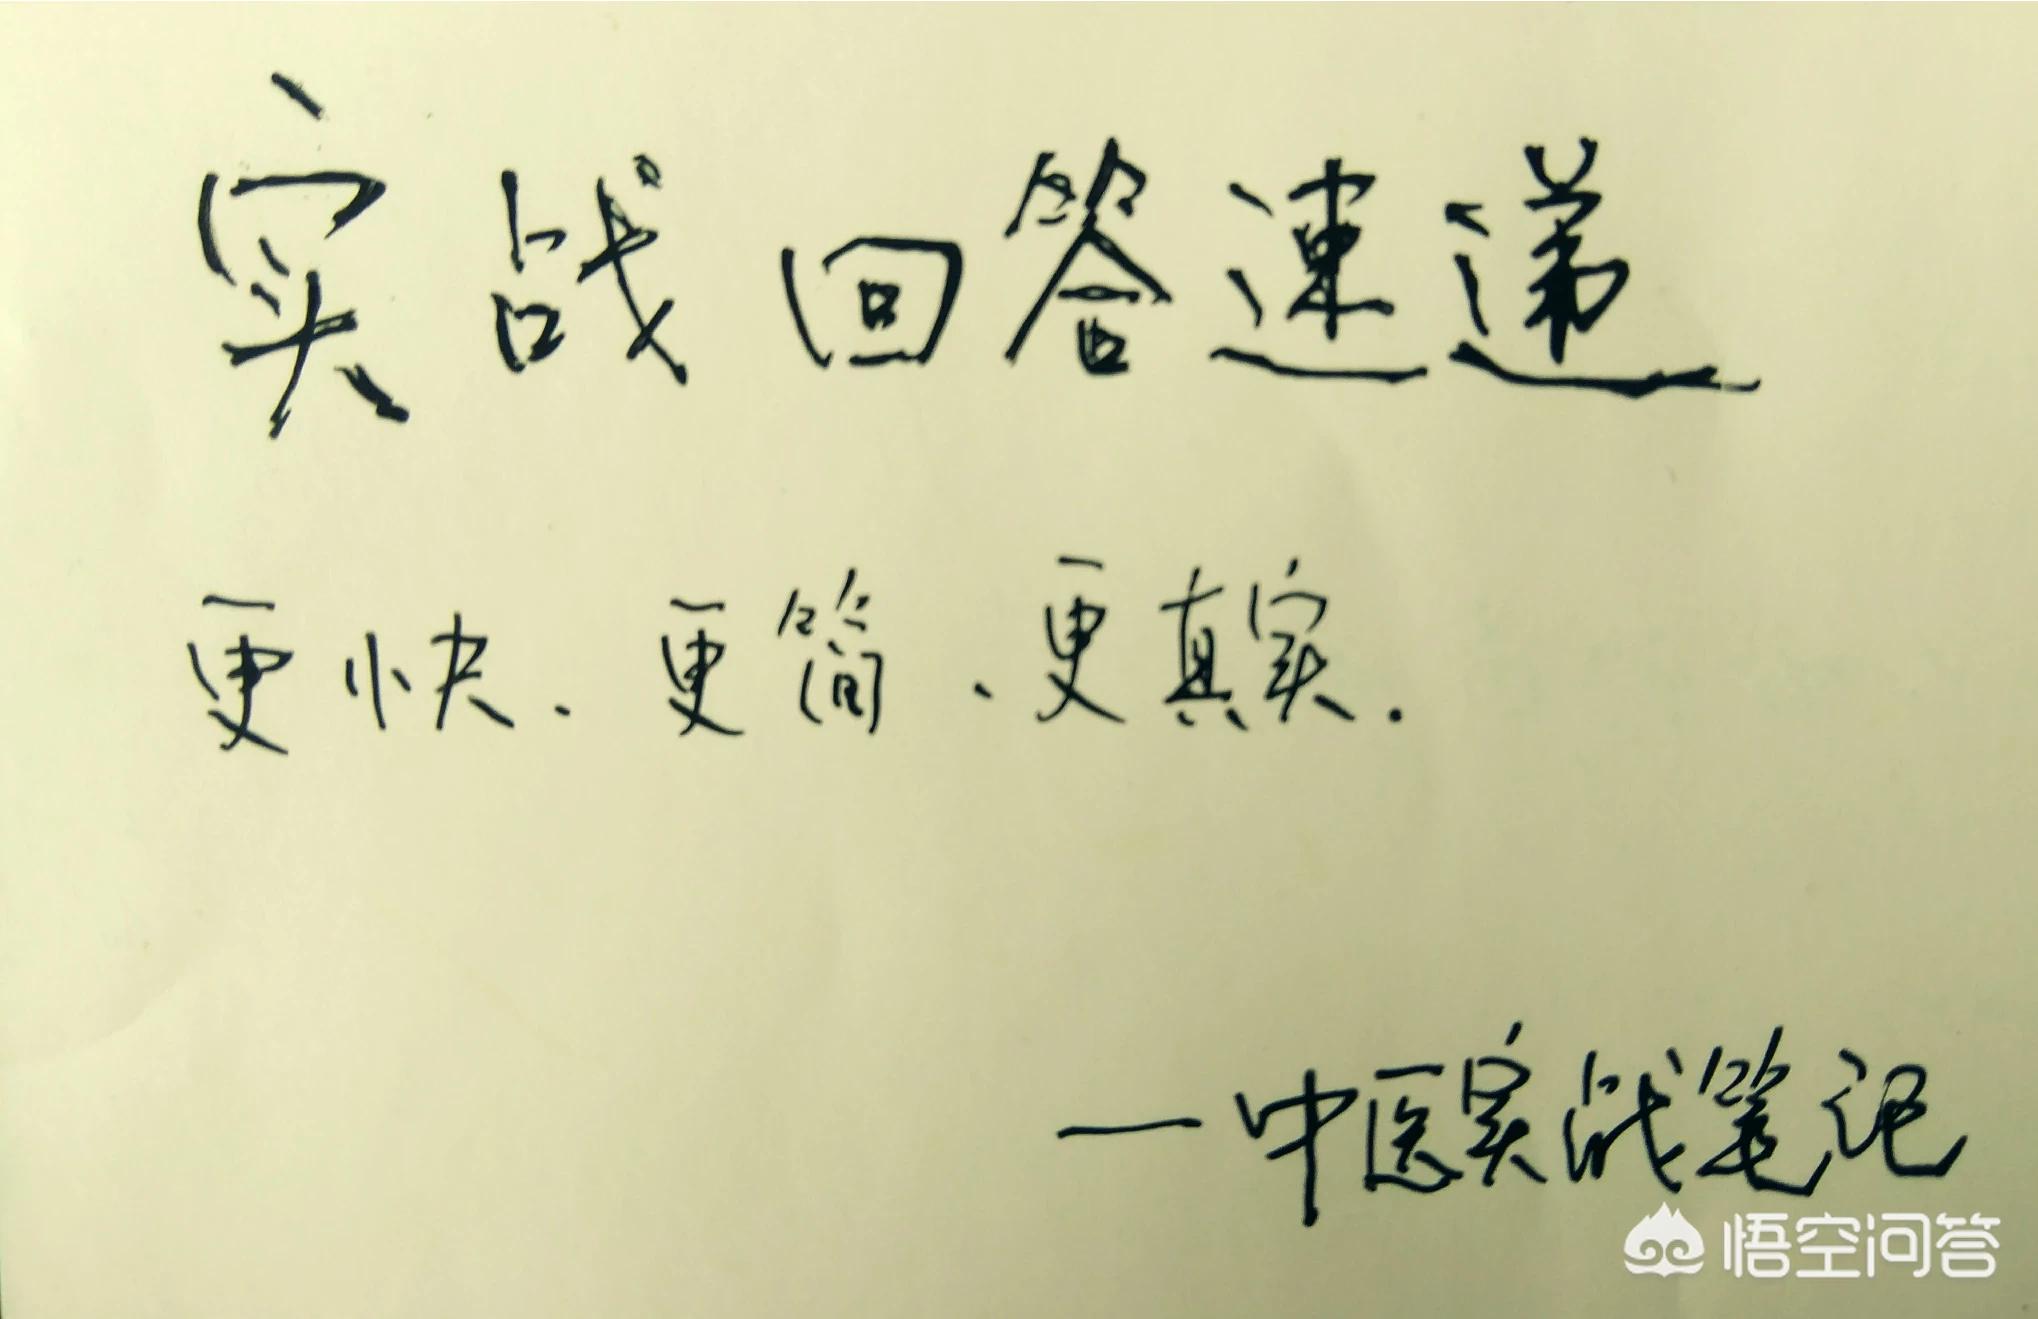 实战回答速递
更快、更简、更真实.
—中医实战笔记
悟空问答